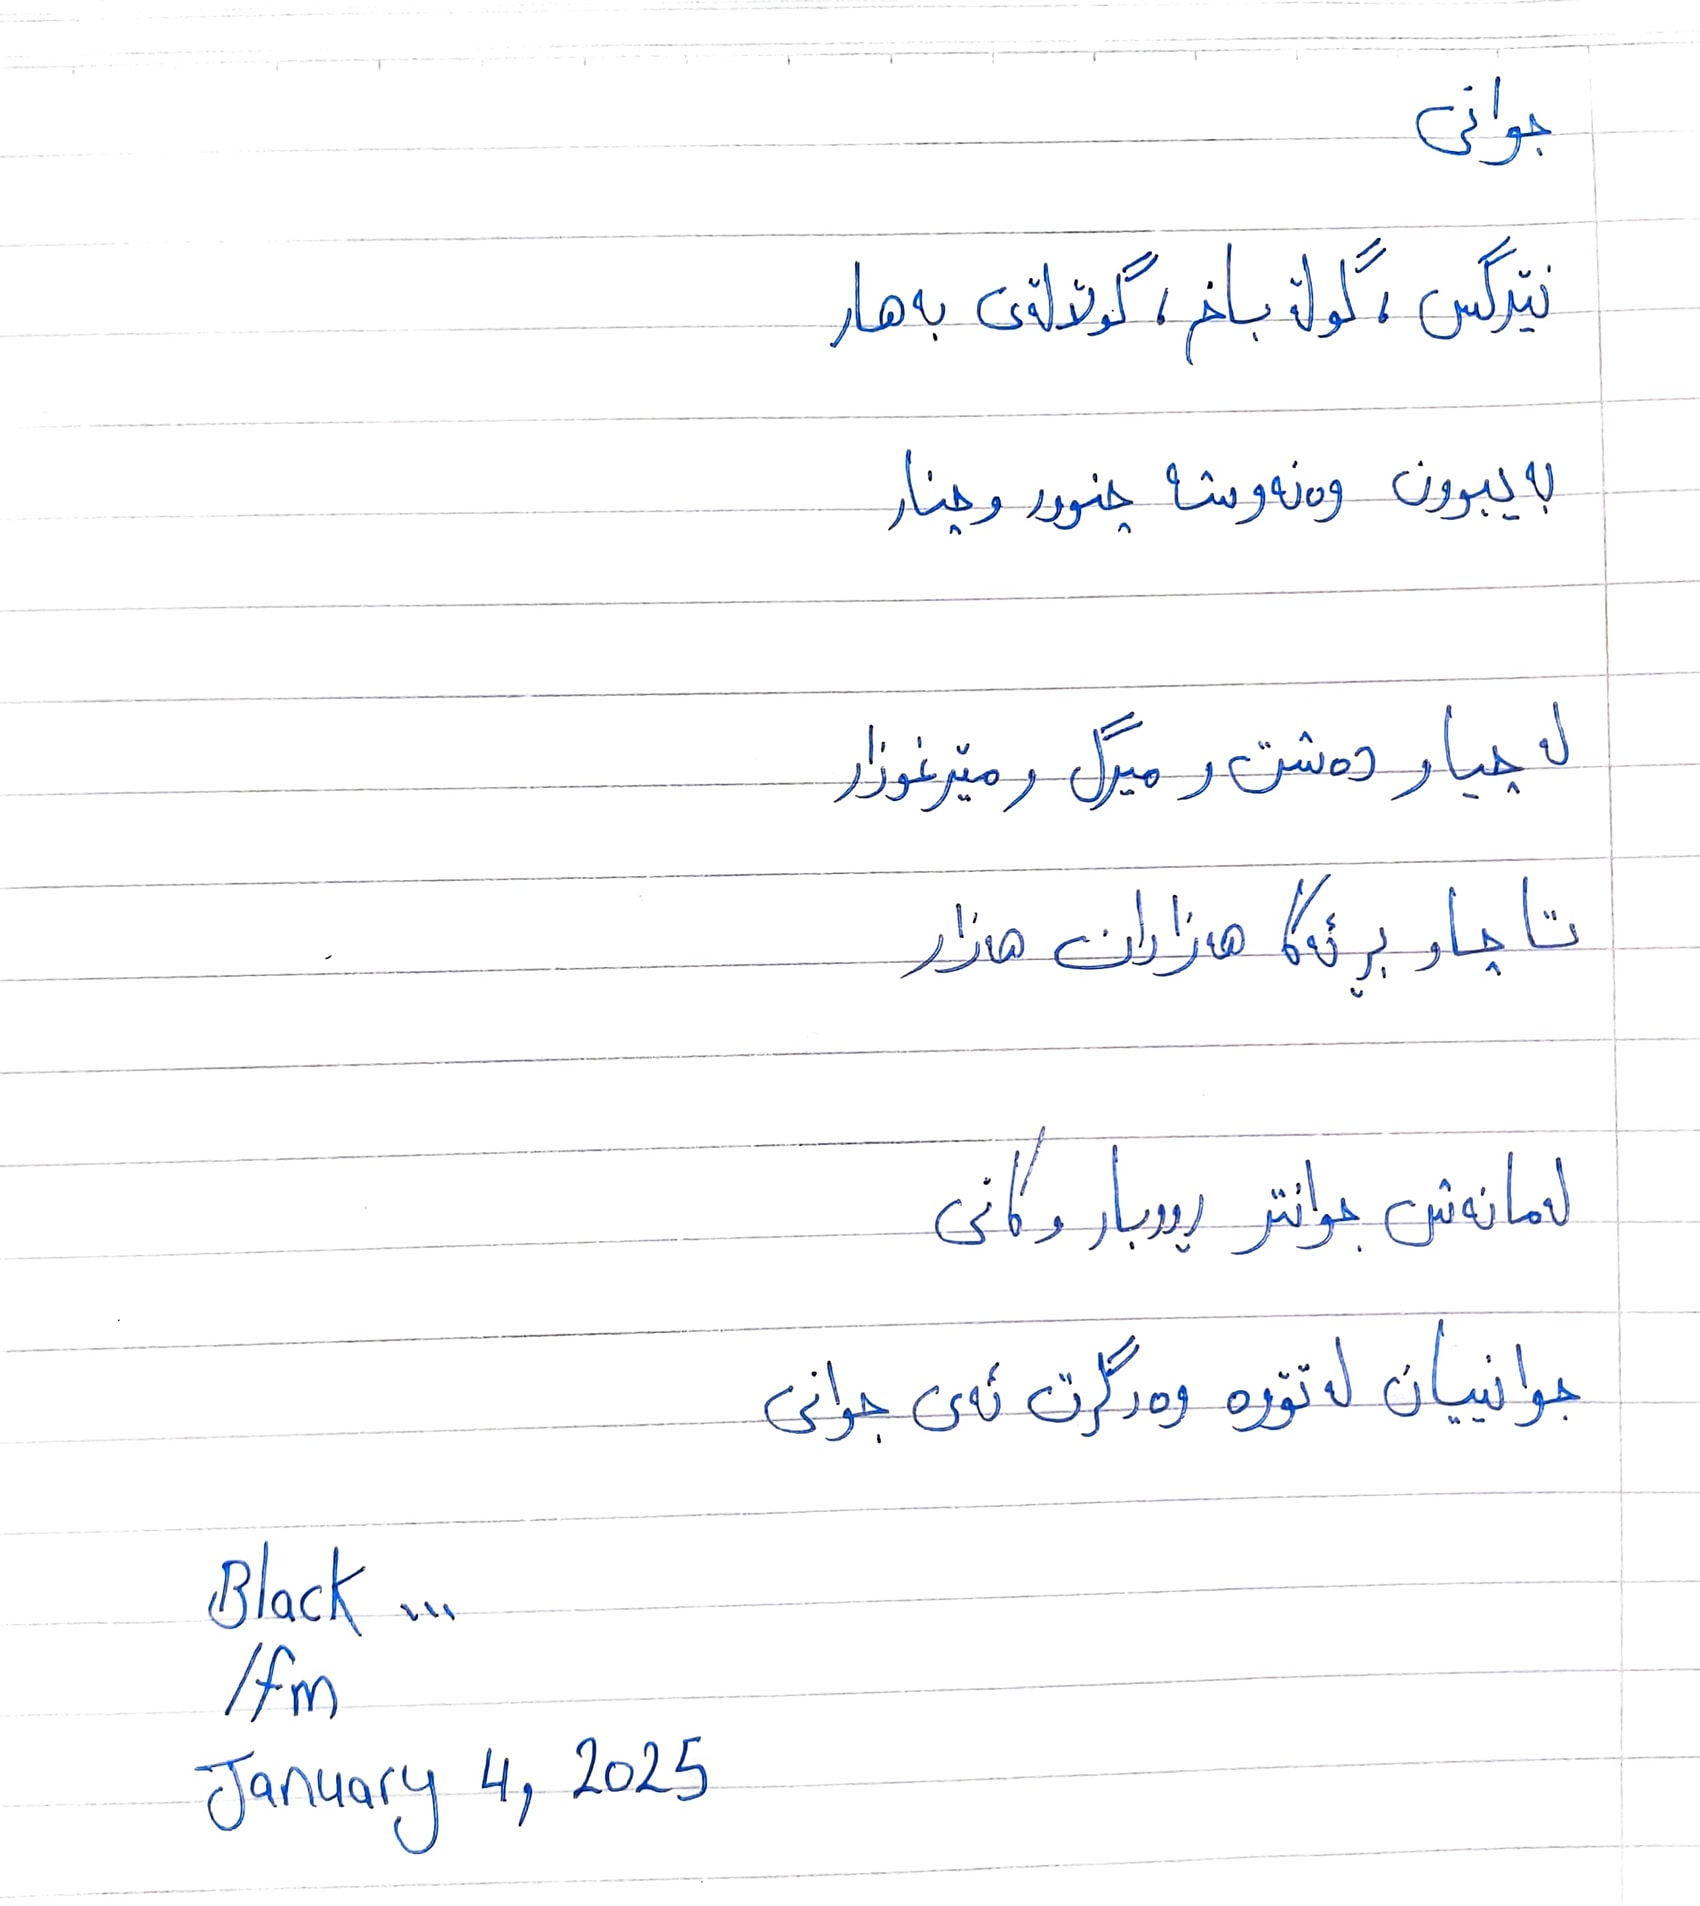 جوانی
نێرگس، گوڵە باخ، گوڵاڵەی بەهار
بەیبوون وەنەوشە چنوور و چنار
لە چیا و دەشت و میرگ و مێرغوزار
تا چاو بڕ ئەکا هەزاران هەزار
لەمانەش جوانتر ڕووبار و کانی
جوانییان لە تۆوە وەرگرت ئەی جوانی
Black ...
/fm
January 4, 2025